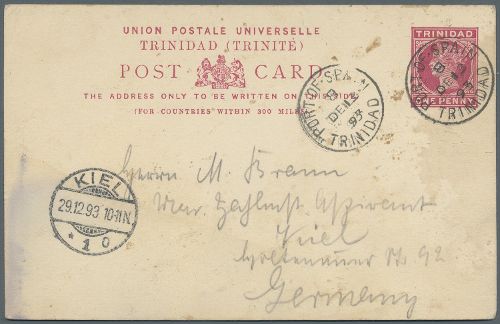 UNION POSTALE UNIVERSELLE
TRINIDAD (TRINITÉ)
POST CARD
THE ADDRESS ONLY TO BE WRITTEN ON THIS SIDE
(FOR COUNTRIES WITHIN 300 MILES)
TRINIDAD
ONE PENNY
PORT-OF-SPAIN
B
DE
93
TRINIDAD
PORT-OF-SPAIN
B
DE
93
TRINIDAD
KIEL
29.12.93 10-11N.
* 1 0
Herrn M. Braun
Mar. Zahlmstr Aspirant
Kiel
No 92
Germany